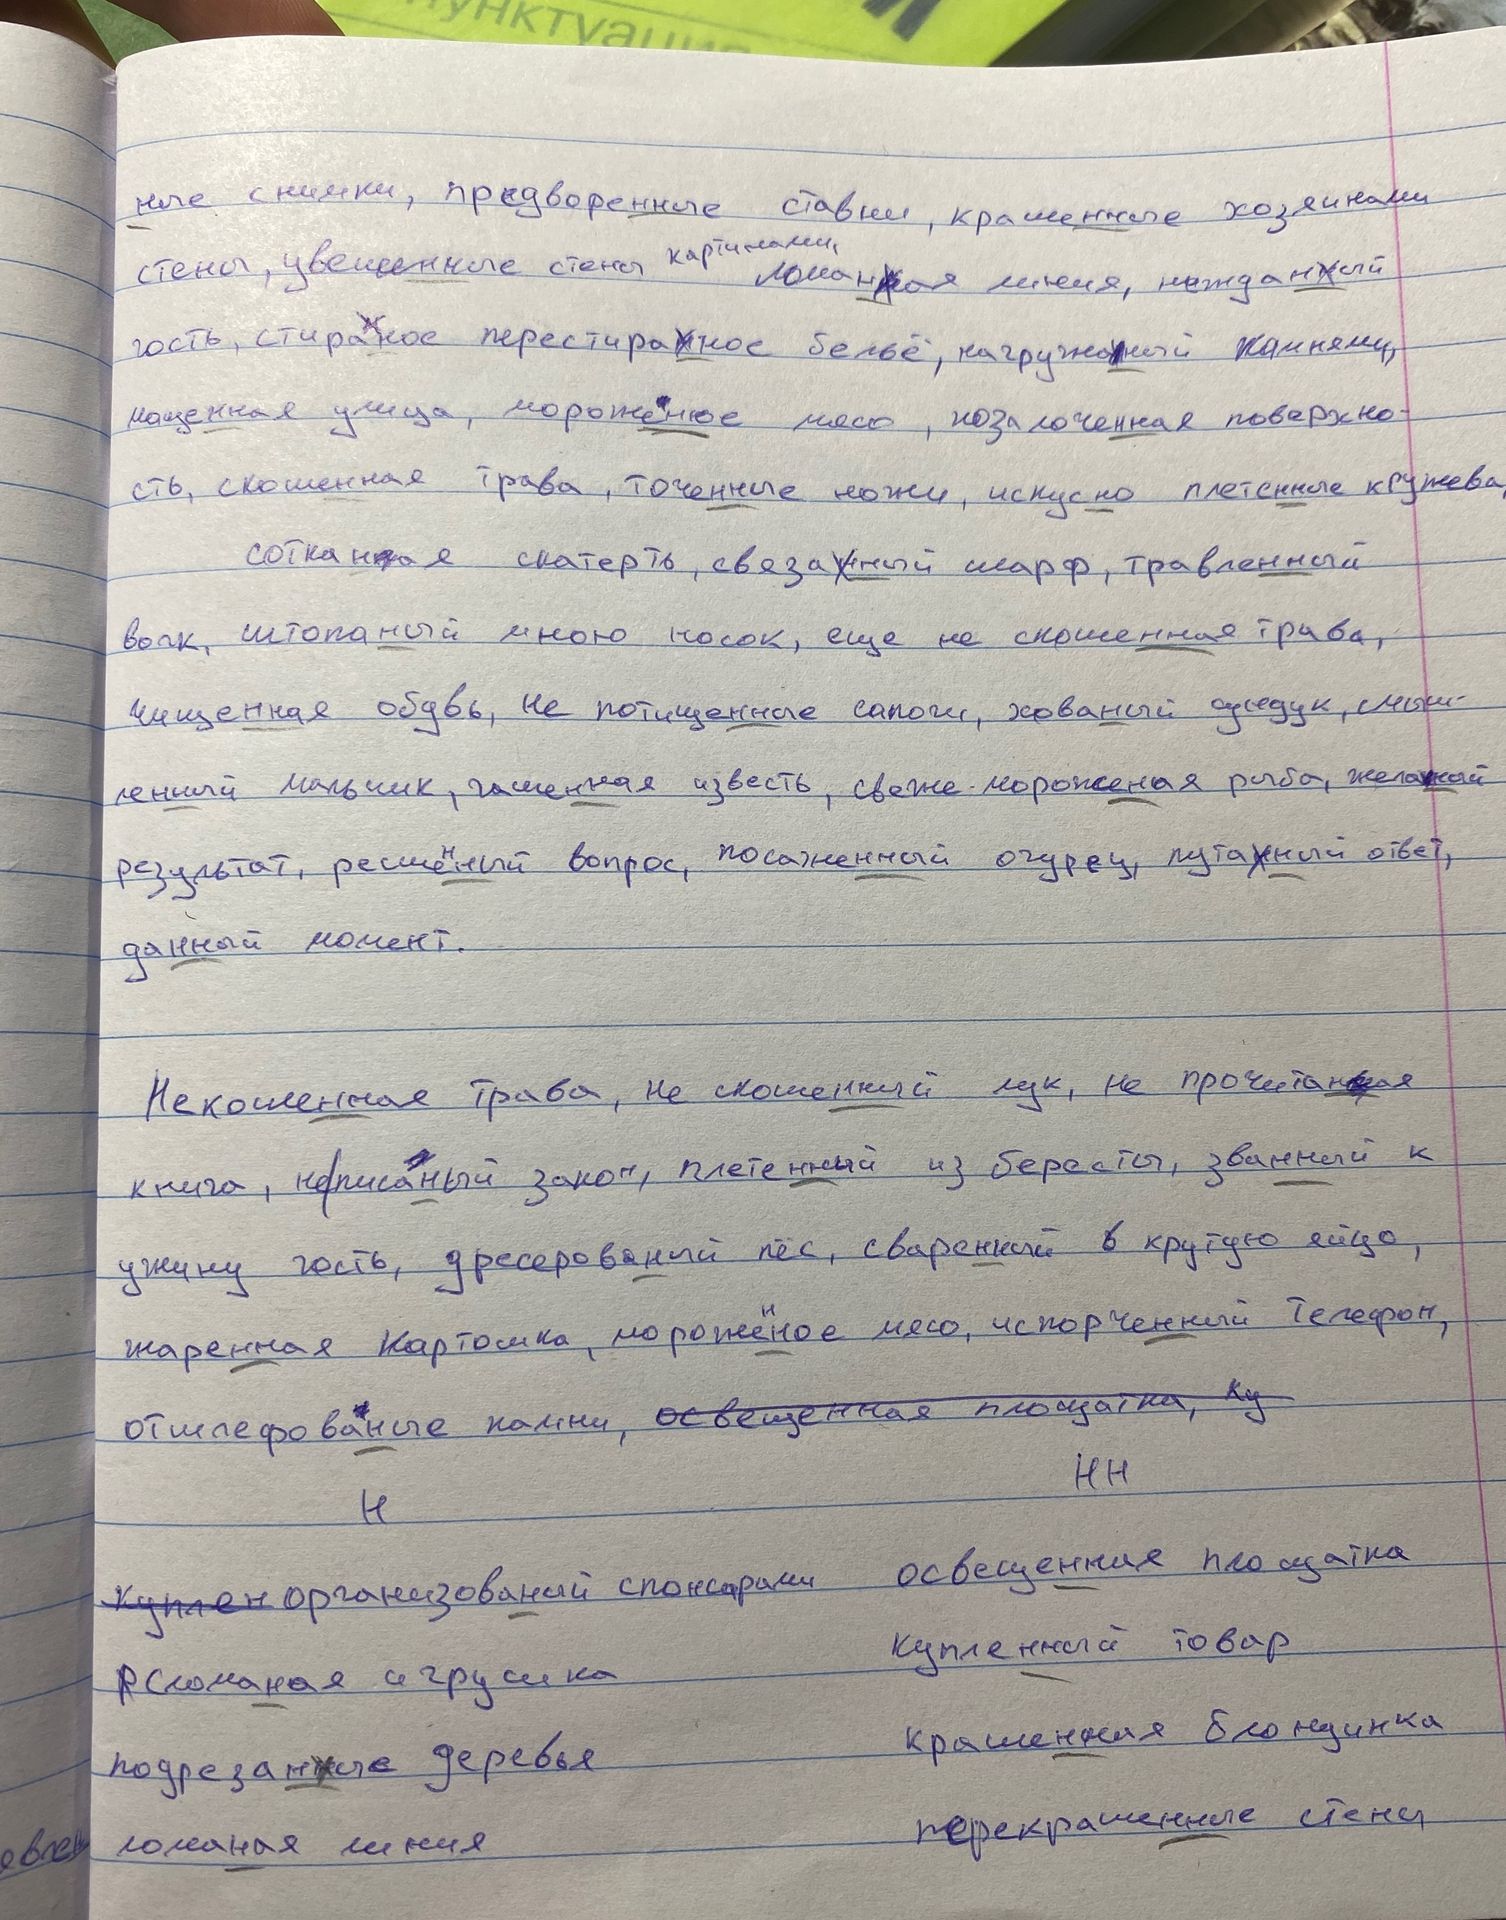 пунктуация
ные снимки, предворенные ставни, крашенные хозяинами
стены, увешенные стены картинами, ломаная линия, нежданый
гость, стираное перестираное бельё, нагружаный камнями,
мощенная улица, мороженое мясо, позалоченная поверхно-
сть, скошенная трава, точенные ножи, искусно плетенные кружева,
сотканая скатерть, связаный шарф, травленный
волк, штопаный мною носок, еще не скошенная трава,
чищенная обувь, не потищенные сапоги, кованый сундук, смыш-
ленный мальчик, гашенная известь, свеже-мороженая рыба, желаный
результат, решенный вопрос, посаженный огурец, путаный ответ,
данный момент.
Некошенная трава, не скошенный лук, не прочитаная
книга, не писаный закон, плетенный из бересты, званный к
ужину гость, дресерованый пёс, сваренный в крутую яйцо,
жаренная картошка, мороженное мясо, испорченный телефон,
отшлефованые камни, освещенная площатка, ку
Н НН
куплен организованый спонсарами освещенная площатка
сломаная игрушка купленный товар
подрезаные деревья крашенная блондинка
ломаная линия перекрашенные стены